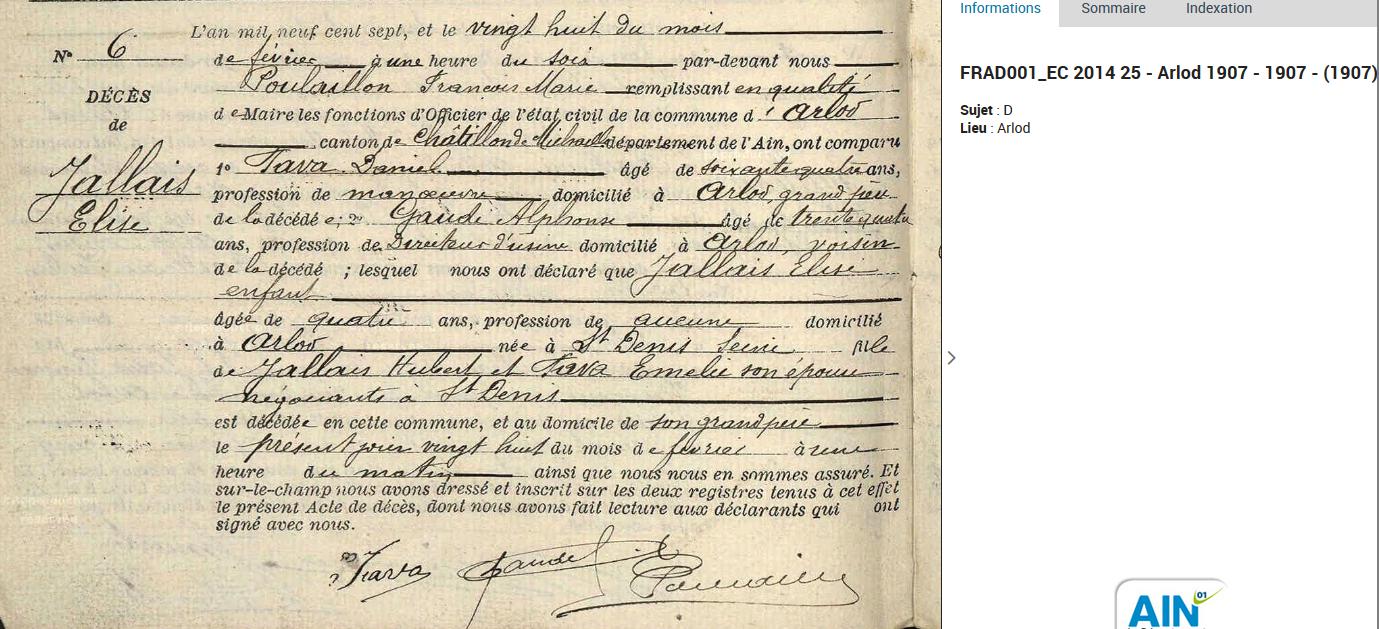 Nº 6
DÉCÈS
de
Jallais
Elise
L'an mil neuf cent sept, et le vingt huit du mois
de février à une heure du soir par-devant nous
Poulaillon François Marie remplissant en qualité
de Maire les fonctions d'Officier de l'état civil de la commune d' Arlod
canton de Châtillon de Michaille département de l'Ain, ont comparu
1º Tava Daniel âgé de soixante quatre ans,
profession de manœuvre domicilié à Arlod, grand père
de la décédée; 2º Gaude Alphonse âgé de trente quatre
ans, profession de Directeur d'usine domicilié à Arlod, voisin
de la décédé ; lesquel nous ont déclaré que Jallais Elise
enfant
âgée de quatre ans, profession de aucune domicilié
à Arlod née à St Denis Seine fille
de Jallais Hubert et Tava Emelie son épouse
négociants à St Denis
est décédée en cette commune, et au domicile de son grand père
le présent jour vingt huit du mois de février à une
heure du matin ainsi que nous nous en sommes assuré. Et
sur-le-champ nous avons dressé et inscrit sur les deux registres tenus à cet effet
le présent Acte de décès, dont nous avons fait lecture aux déclarants qui ont
signé avec nous.
Tava Gaude
Informations Sommaire Indexation
FRAD001_EC 2014 25 - Arlod 1907 - 1907 - (1907)
Sujet : D
Lieu : Arlod
AIN 01